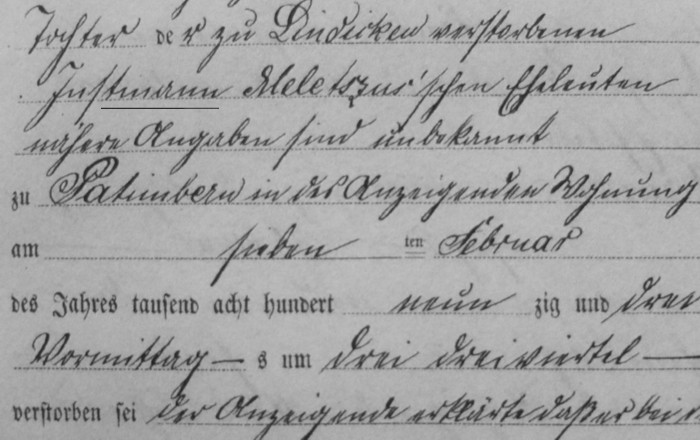 Tochter der zu Lindicken verstorbenen
Instmann Meletszus'schen Eheleuten
nähere Angaben sind unbekannt
zu Patimbern in des Anzeigenden Wohnung
am sieben ten Februar
des Jahres tausend acht hundert neun zig und drei
Vormittag — s um drei dreiviertel —
verstorben sei der Anzeigende erklärte daß er bei